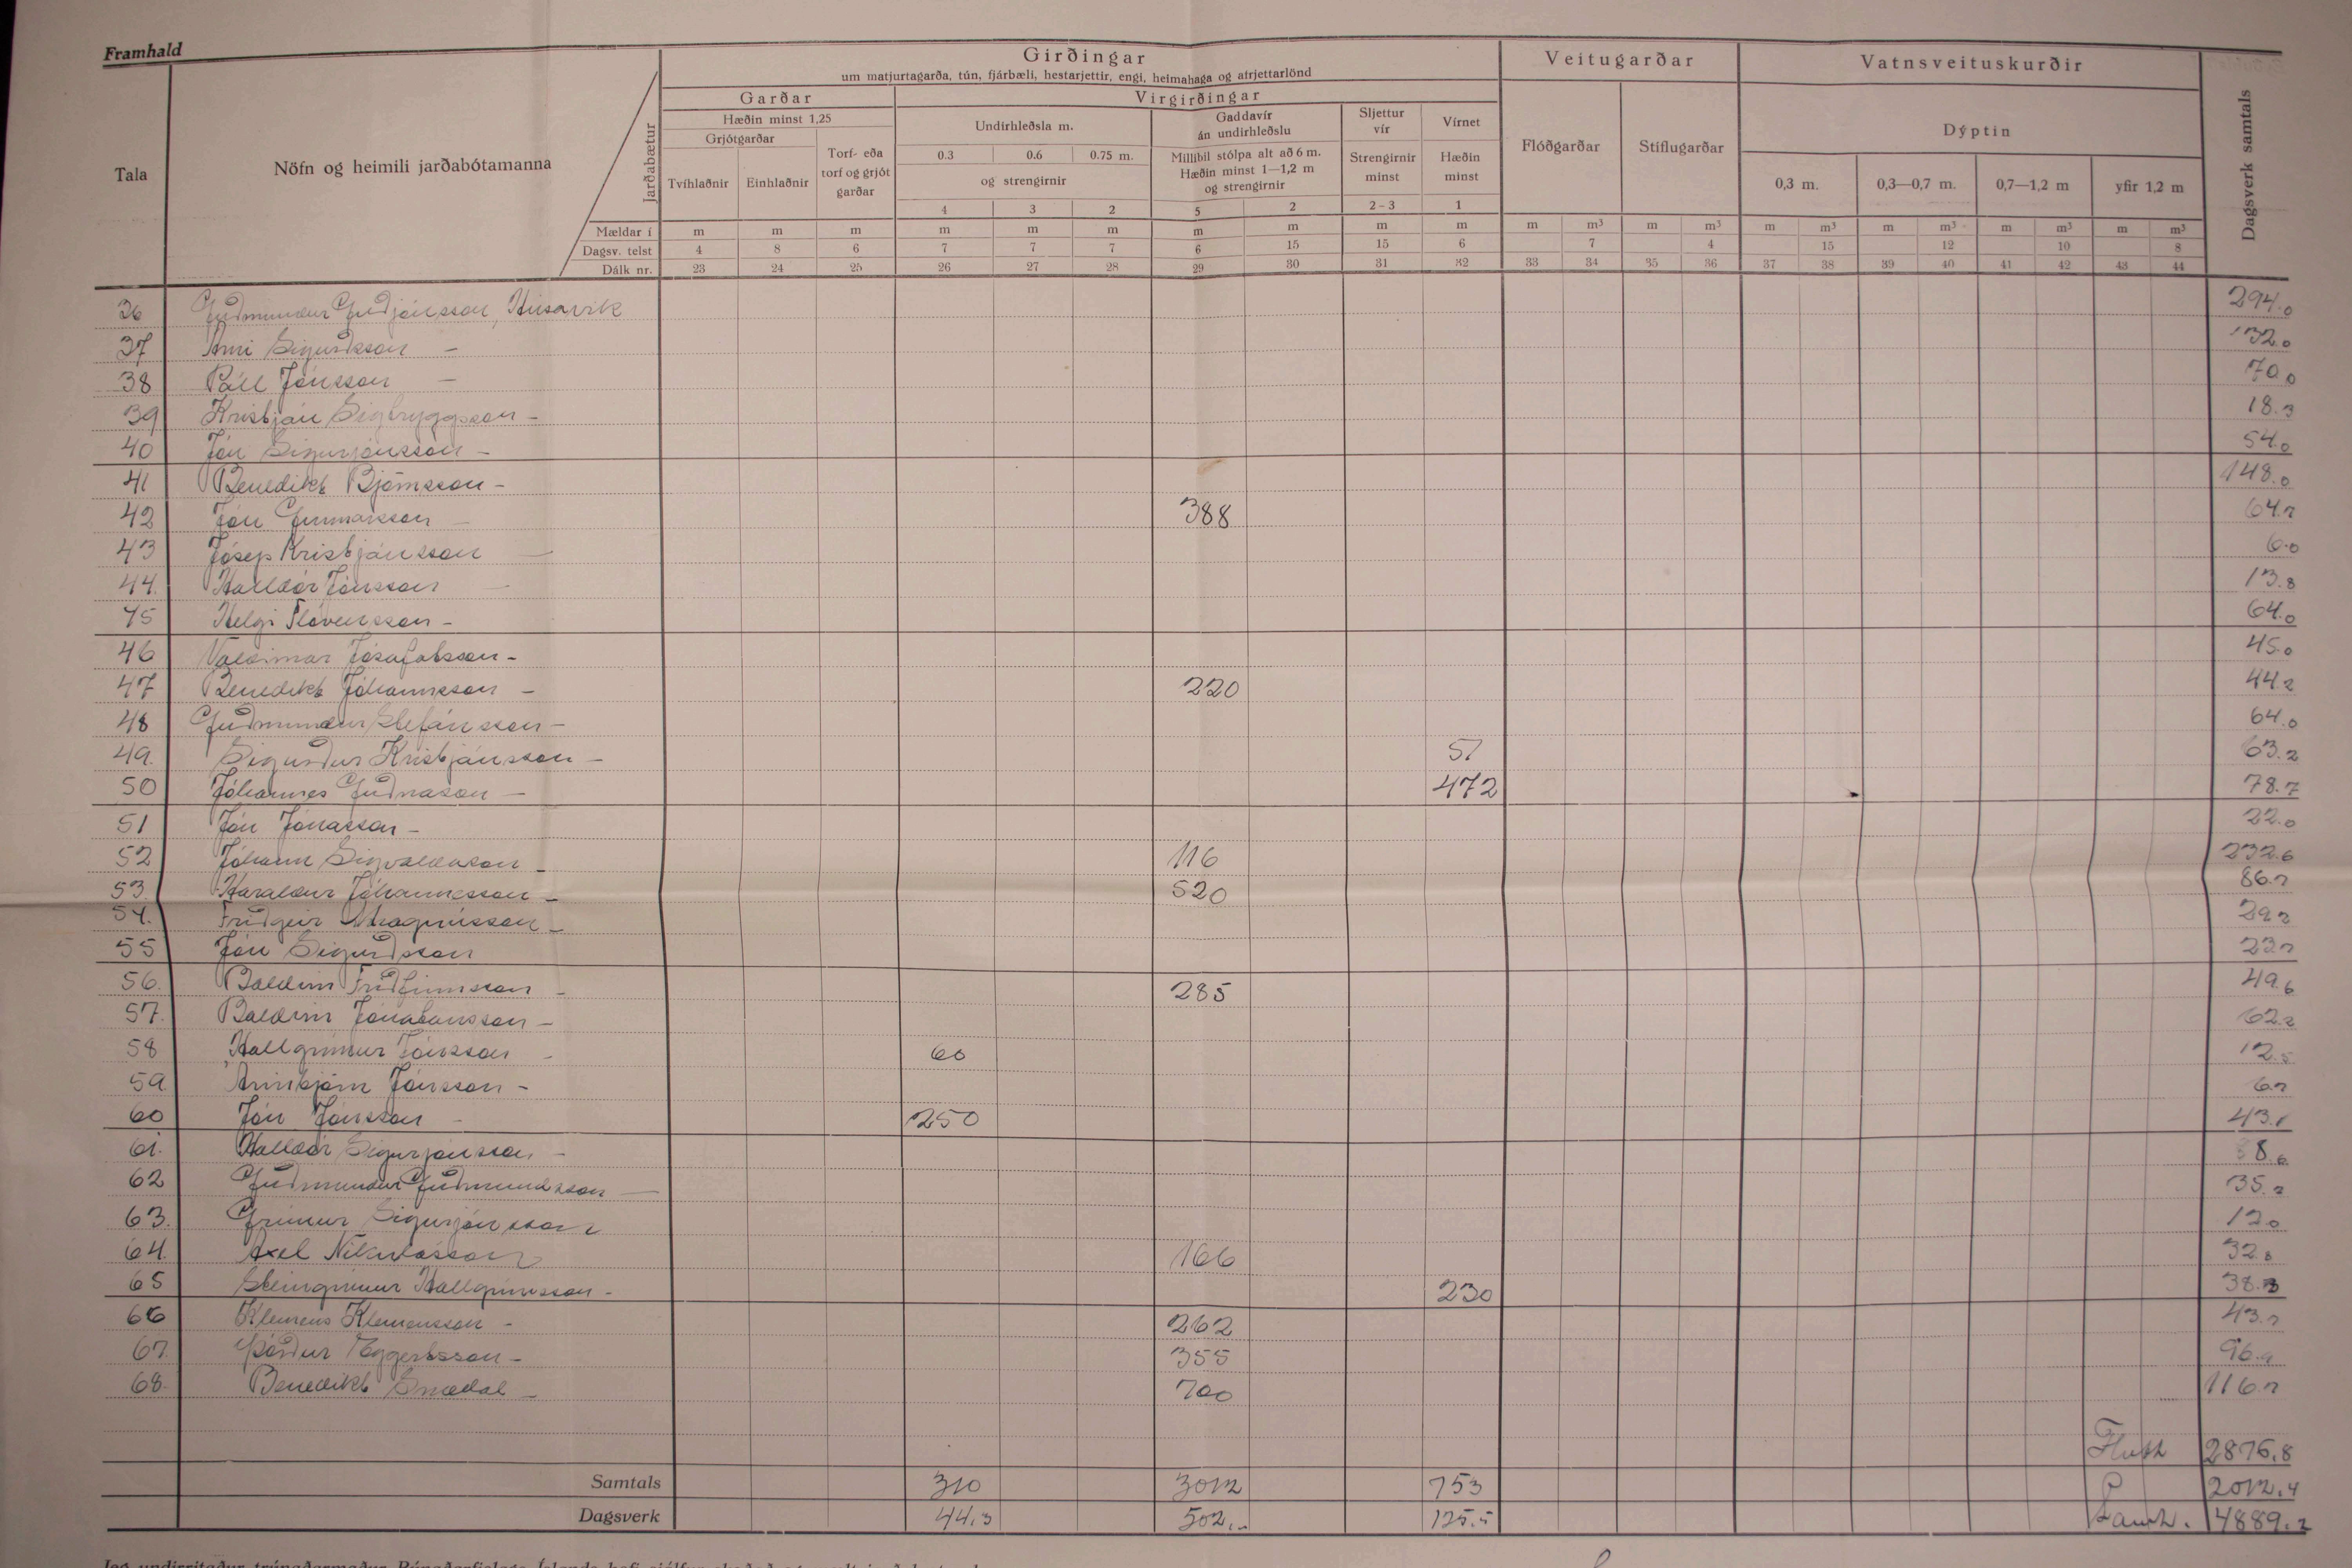 Framhald
Tala
Nöfn og heimili jarðabótamanna
Jarðabætur
Girðingar
um matjurtagarða, tún, fjárbæli, hestarjettir, engi, heimahaga og afrjettarlönd
Veitugarðar
Vatnsveituskurðir
Dagsverk samtals
Garðar
Vírgirðingar
Hæðin minst 1,25
Grjótgarðar
Tvíhlaðnir Einhlaðnir
Torf- eða torf og grjót garðar
Undirhleðsla m.
0.3 0.6 0.75 m.
og strengirnir
4 3 2
Gaddavír
án undirhleðslu
Millibil stólpa alt að 6 m.
Hæðin minst 1—1,2 m
og strengirnir
5 2
Sljettur vír
Strengirnir minst
2-3
Vírnet
Hæðin minst
1
Flóðgarðar
Stíflugarðar
Dýptin
0,3 m. 0,3—0,7 m. 0,7—1,2 m yfir 1,2 m
Mældar í m m m m m m m m m m m m³ m m³ m m³ m m³ m m³ m m³
Dagsv. telst 4 8 6 7 7 7 6 15 15 6 7 4 15 12 10 8
Dálk nr. 23 24 25 26 27 28 29 30 31 32 33 34 35 36 37 38 39 40 41 42 43 44
36 Guðmundur Guðjónsson, Húsavík 294.0
37 Árni Sigurðsson — 132.0
38 Páll Jónsson — 70.0
39 Kristján Sigtryggsson — 18.3
40 Jón Sigurjónsson — 54.0
41 Benedikt Björnsson — 148.0
42 Jón Gunnarsson — 388 64.7
43 Jósep Kristjánsson — 6.0
44. Halldór Jónsson — 13.8
45 Helgi Flóventsson — 64.0
46 Valdimar Jósafatsson — 45.0
47 Benedikt Jóhannsson — 220 44.2
48 Guðmundur Stefánsson — 64.0
49. Sigurður Kristjánsson — 51 63.2
50 Jóhannes Guðnason — 472 78.7
51 Jón Jónasson — 22.0
52 Jóhann Sigvaldason — 116 232.6
53. Haraldur Jóhannesson — 520 86.7
54. Friðgeir Magnússon — 29.2
55 Jón Sigurðsson 23.2
56. Baldvin Friðfinnsson — 285 49.6
57. Baldvin Jónatansson — 62.2
58 Hallgrímur Jónsson — 60 12.5
59. Arinbjörn Jónsson — 6.7
60 Jón Jónsson — 250 43.1
61. Halldór Sigurjónsson — 8.6
62 Guðmundur Guðmundsson — 35.2
63. Grímur Sigurjónsson 12.0
64. Axel Nikulásson 166 32.8
65 Steingrímur Hallgrímsson — 230 38.3
66 Klemens Klemensson — 262 43.7
67. Þórður Eggertsson — 355 96.
68. Benedikt Snædal — 700 116.7
Flutt 2876.8
Samtals 310 3012 753 2012.4
Dagsverk 44.3 502.- 125.5 Samt. 4889.2